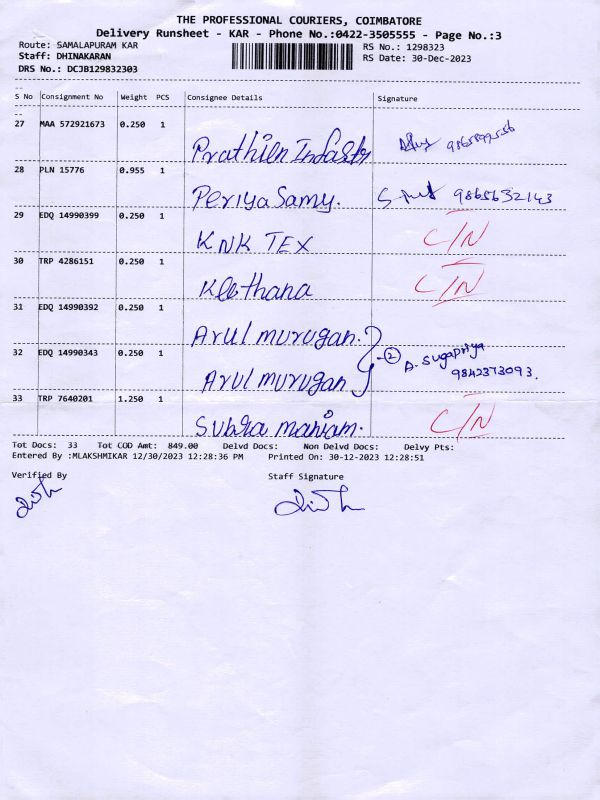 THE PROFESSIONAL COURIERS, COIMBATORE
Delivery Runsheet - KAR - Phone No.:0422-3505555 - Page No.:3
Route: SAMALAPURAM KAR RS No.: 1298323
Staff: DHINAKARAN RS Date: 30-Dec-2023
DRS No.: DCJB129832303
S No Consignment No Weight PCS Consignee Details Signature
27 MAA 572921673 0.250 1
Prathien
28 PLN 15776 0.955 1
Periya Samy. 9865632143
29 EDQ 14990399 0.250 1
KNK TEX C/N
30 TRP 4286151 0.250 1
C/N
31 EDQ 14990392 0.250 1
Arul murugan.
32 EDQ 14990343 0.250 1 2 A. Sugapriya
Arul murugan 9842373093.
33 TRP 7640201 1.250 1
Subra maniam. C/N
Tot Docs: 33 Tot COD Amt: 849.00 Delvd Docs: Non Delvd Docs: Delvy Pts:
Entered By :MLAKSHMIKAR 12/30/2023 12:28:36 PM Printed On: 30-12-2023 12:28:51
Verified By Staff Signature